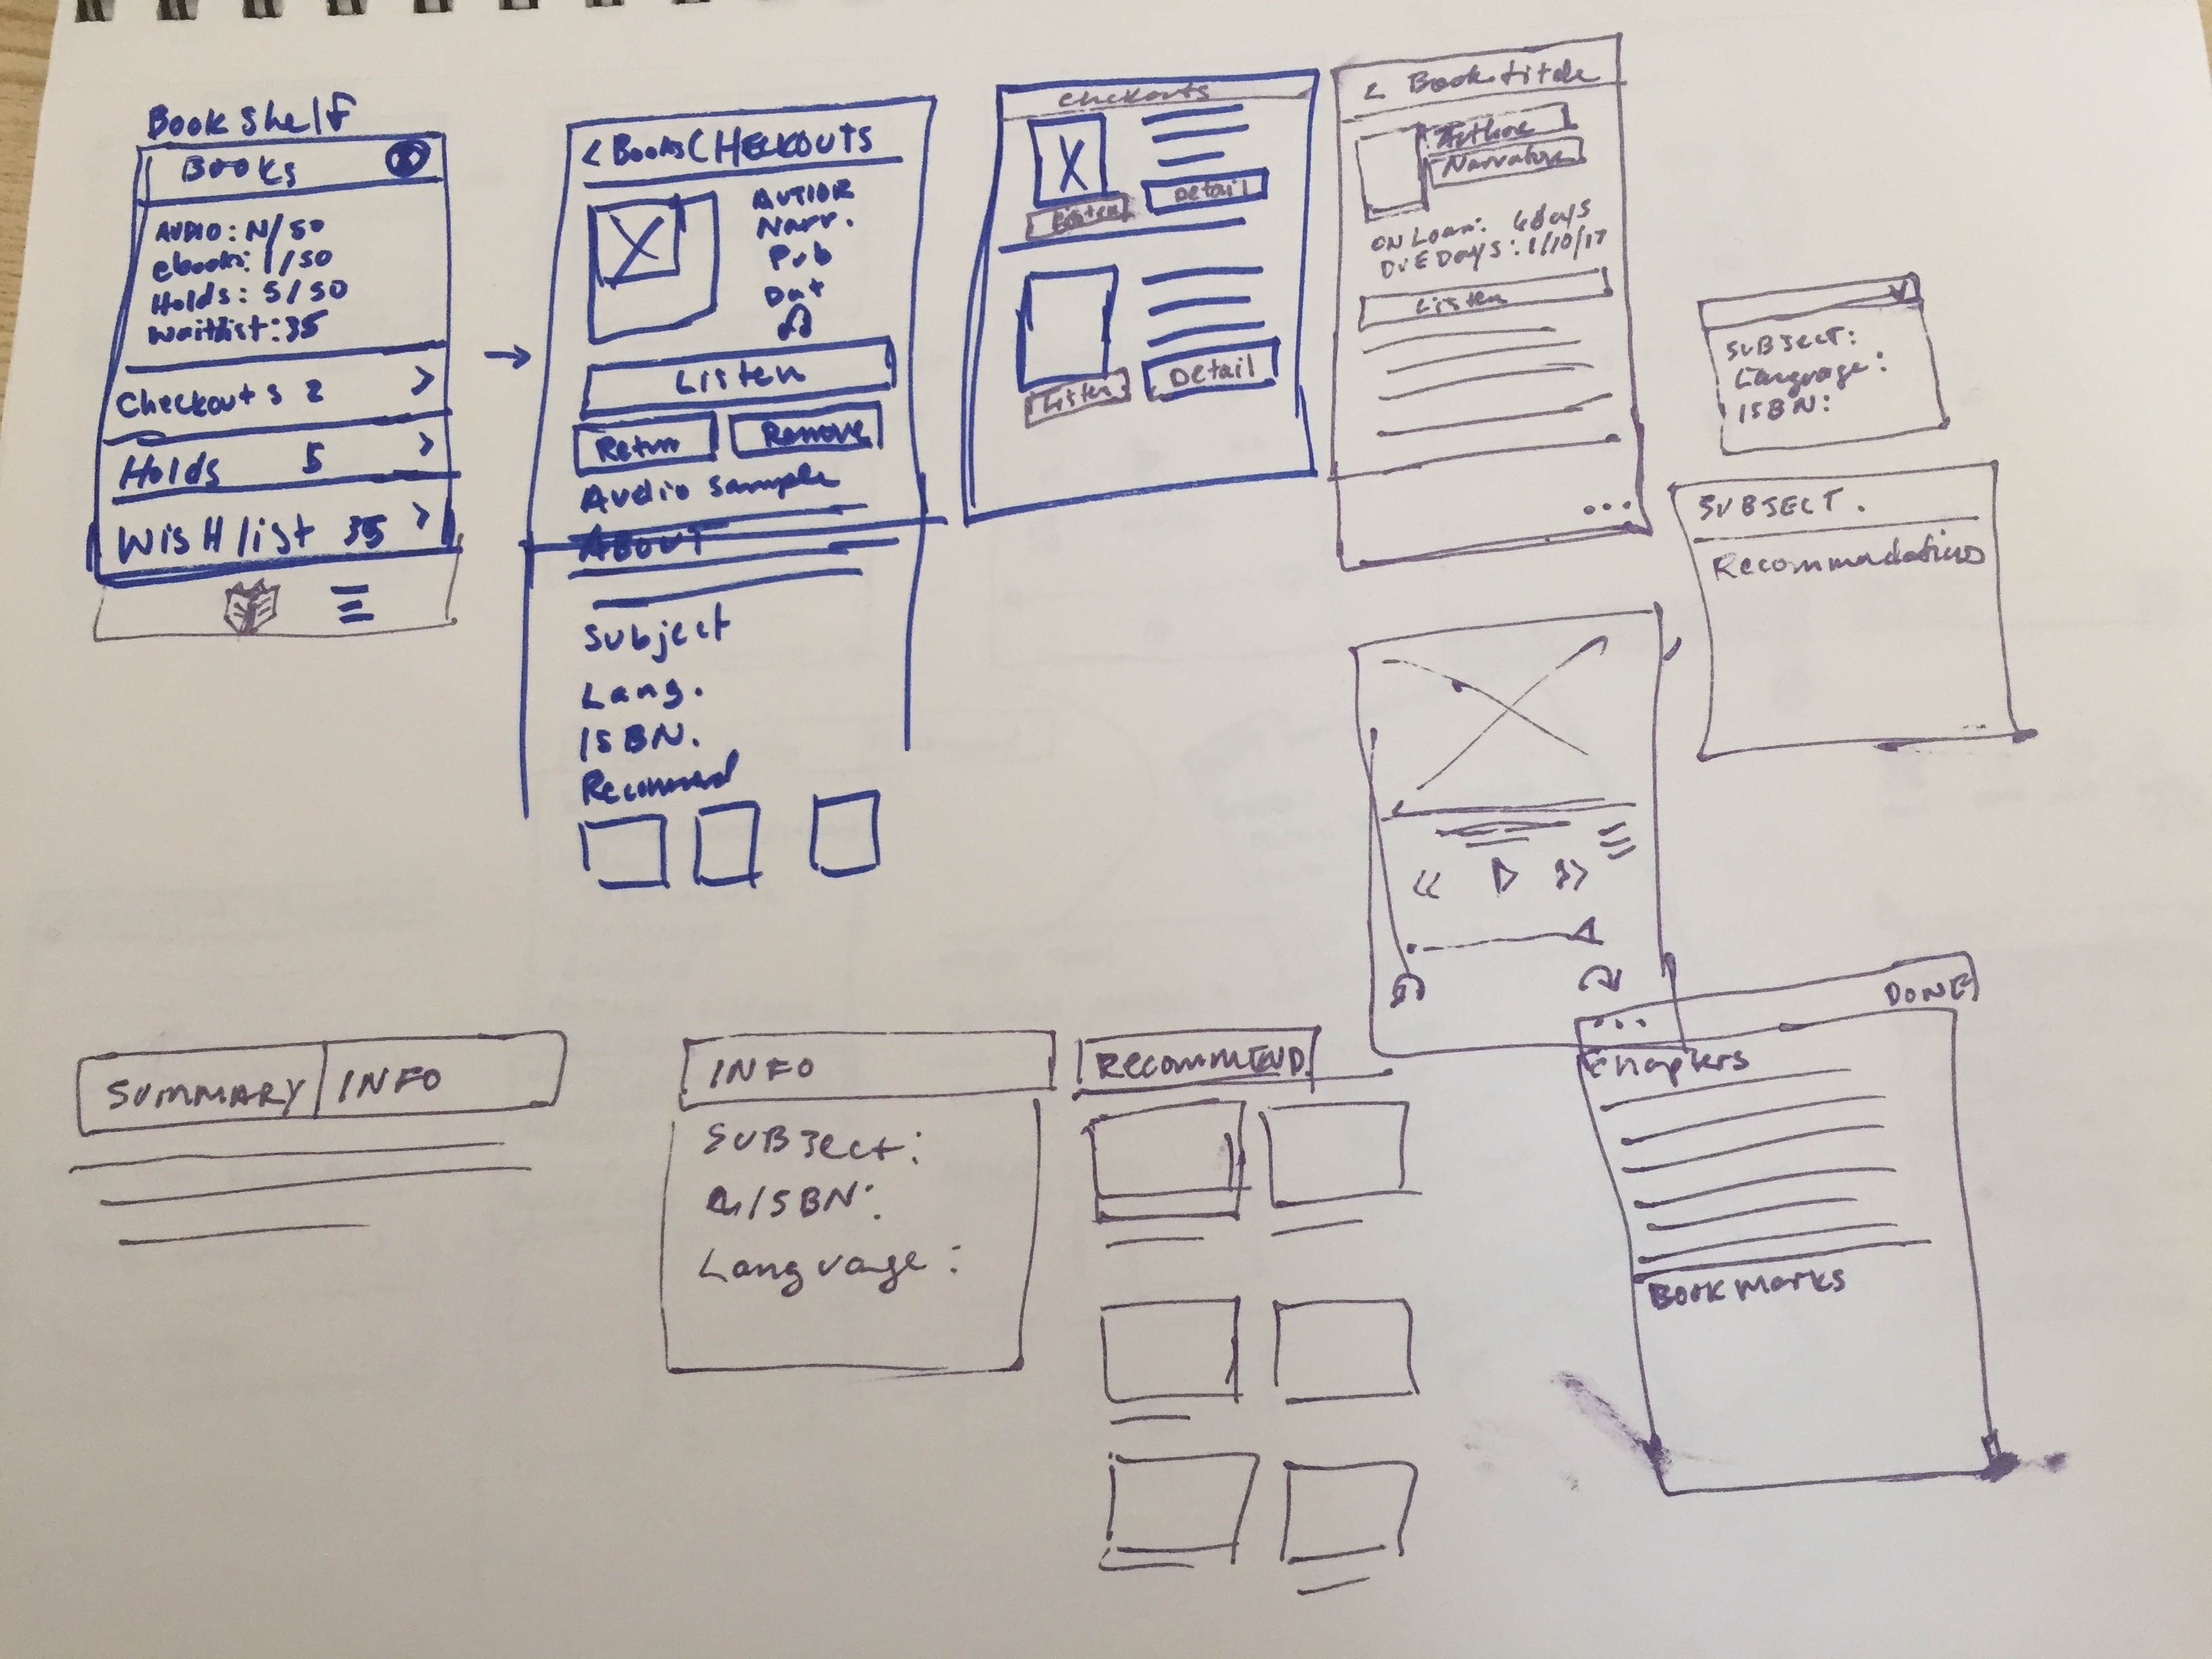 Book Shelf
Books
AUDIO: N/50
ebook: 1/50
Holds: 5/50
Waitlist: 35
Checkouts 2 >
Holds 5 >
WisHlist 35 >
< Books CHECKOUTS
AUTIOR
Narr.
Pub
Dat
Listen
Return Remove
Audio Sample
ABOUT
Subject
Lang.
ISBN.
Recommend
Checkouts
X
Listen Detail
Listen Detail
< Book title
Author
Narrator
ON Loan: 6 days
DUE Days: 1/10/17
Listen
...
SUBJECT:
Language:
ISBN:
SUBJECT.
Recommendations
DONE
...
Chapters
Bookmarks
SUMMARY INFO
INFO
SUBJect:
ISBN:
Language:
Recommend